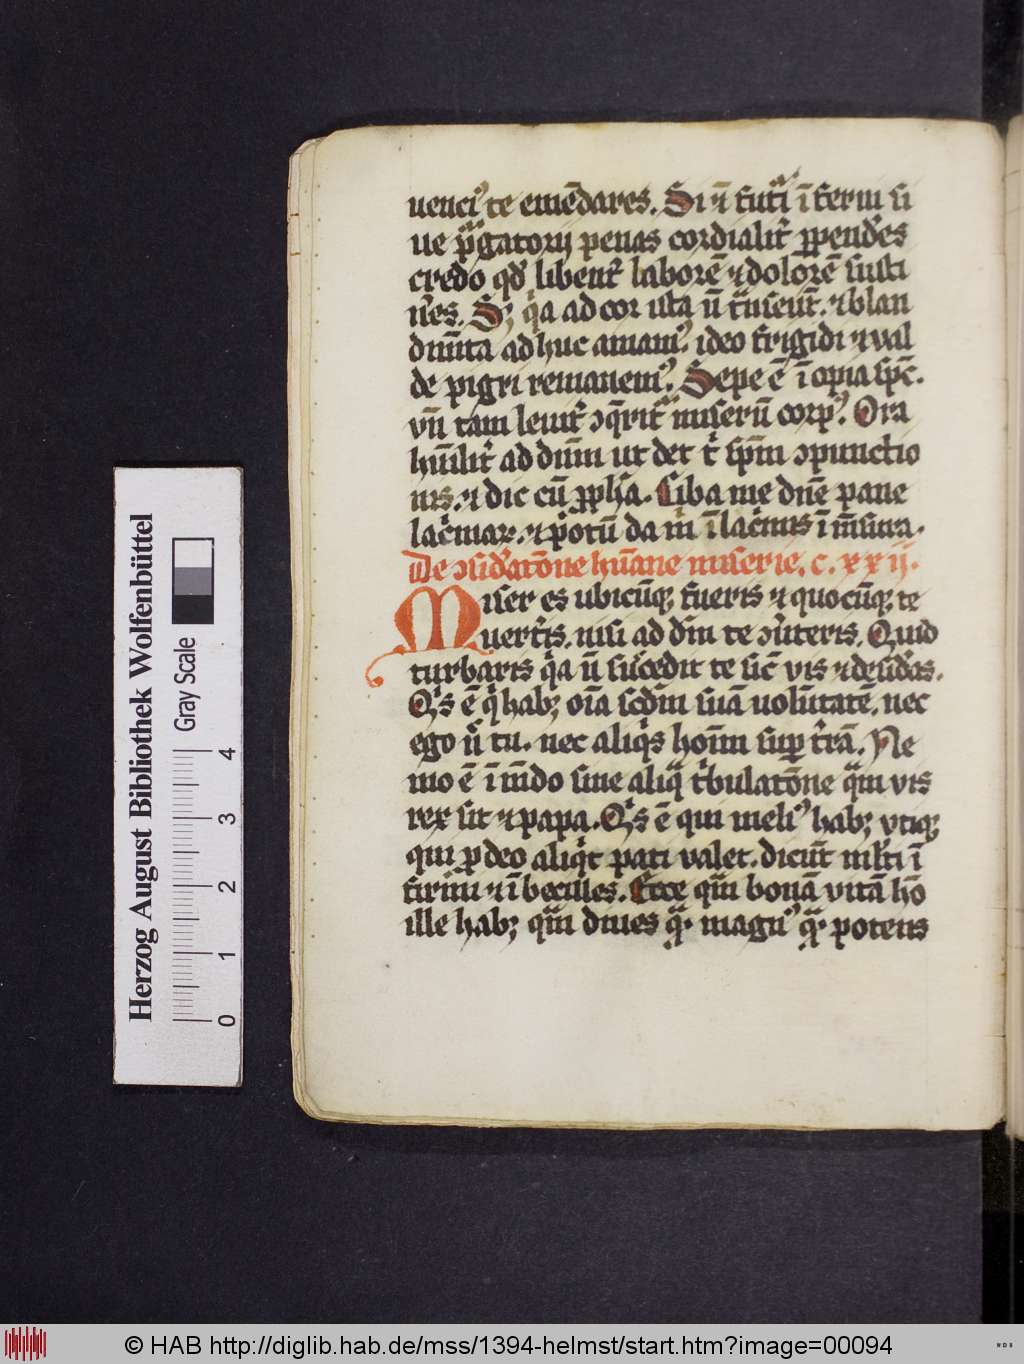 uenciꝰ te emēdares. Si ⁊ futᷓ ī ferni si
ue pᷓgatorij penas cordialit᷑ ꝑpend᷑es
credo qđ libent᷑ laborē ⁊ dolorē susti
n᷑es. Sꝫ qͥa ad cor ista ū tᷓnseūt. ⁊ blan
dim̄ta adhuc amamꝰ. ideo frigidi ⁊ val
de pigri remanemꝰ. Sepe ē īopia sp̄c.
vn̄ tam leuit᷑ ꝯq̄rit᷑ miserū corpꝰ. Ora
hūilit᷑ ad dūm ut det t͛ sp̄m ꝯpunctio
nis. ⁊ dic cū ꝓph̄a. Ciba me dn̄e pane
lac᷑maꝝ. ⁊ potū da m͛ ī lac᷑mis ī m̄sura.
De ꝯsid᷑atōne hūane miserie. c. xxij.
Miser es ubicūqꝫ fueris ⁊ quocūqꝫ te
uert᷑is. nisi ad dm̄ te ꝯu᷑teris. Quid
turbaris qͥa ū succedit te sic̄ vis ⁊ desid᷑as.
Qͥs ē qͥ habꝫ oīa scd̄m suā uolūtatē. nec
ego n᷑ tu. nec aliqͥs hoīm suꝑ t᷑rā. Ne
mo ē ī mūdo sine aliqᷓ t͛bulatōne qᷓm vis
rex sit ⁊ papa. Qͥs ē qui meliꝰ habꝫ vtiqꝫ
qui ꝓ deo aliqͥt pati valet. dicūt mlti ī
firmi ⁊ ībecilles. Ecce qᷓm bonā vitā hō
ille habꝫ qᷓm diues qᷓ. magnꝰ qᷓ. potens
Herzog August Bibliothek Wolfenbüttel
Gray Scale
0 1 2 3 4
© HAB http://diglib.hab.de/mss/1394-helmst/start.htm?image=00094